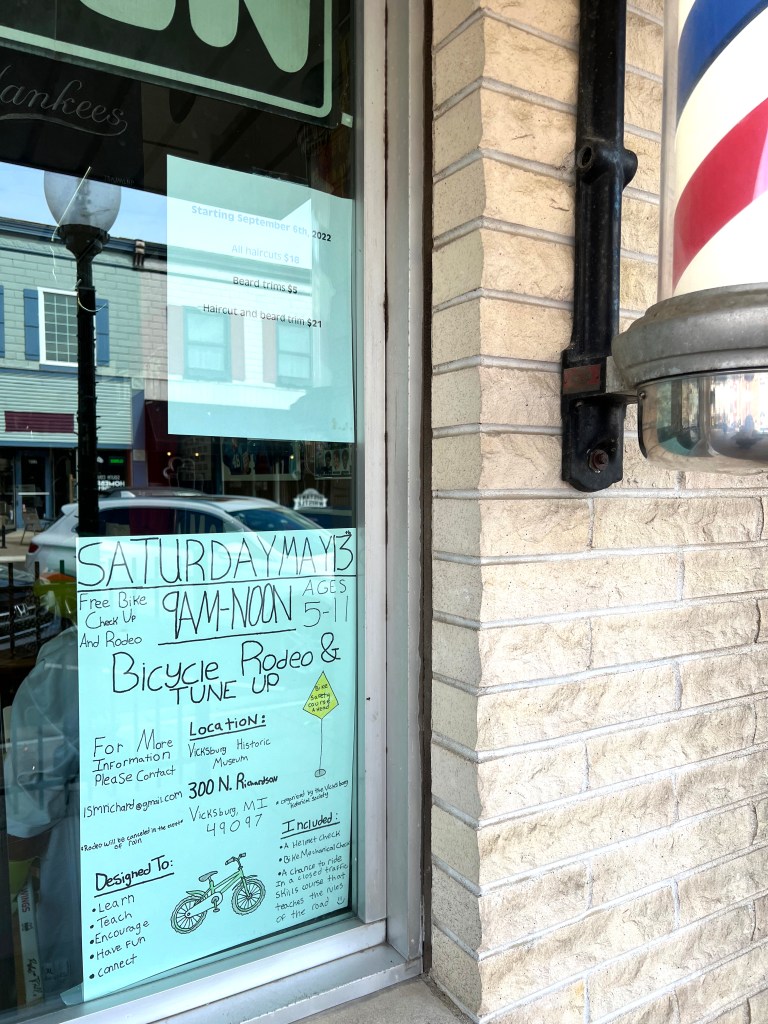 EN
Yankees
Starting September 6th, 2022
All haircuts $18
Beard trims $5
Haircut and beard trim $21
SATURDAY MAY 13
Free Bike
Check Up
And Rodeo
9AM-NOON
AGES
5-11
Bicycle Rodeo &
TUNE UP
Bike
Safety
course
Ahead
For More
Information
Please Contact
ismnrichard@gmail.com
*Rodeo will be canceled in the event
of rain
Location:
Vicksburg Historic
Museum
300 N. Richardson
Vicksburg, MI
49097
* organized by the Vicksburg
historical society
Included:
• A Helmet Check
• Bike Mechanical Check
• A chance to ride
In a closed traffic
skills course that
teaches the rules
of the road
Designed To:
• Learn
• Teach
• Encourage
• Have Fun
• connect